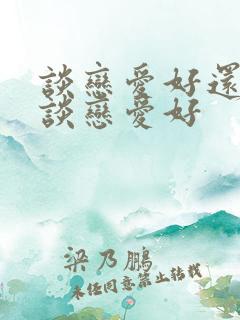 談戀愛好還
談戀愛好
梁乃鵬
未經同意禁止轉載